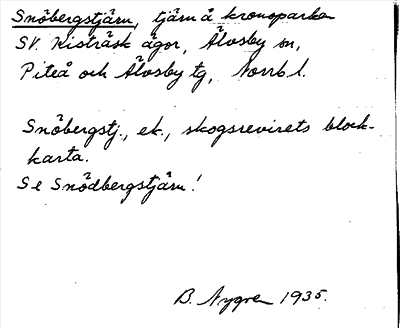 Snöbergstjärn, tjärn å kronoparken
SV. Kisträsk ägor, Älvsby sn,
Piteå och Älvsby tg, Norrb l.
Snöbergstj., ek., skogsrevirets block-
karta.
Se Snödbergstjärn!
B. Nygren 1935.